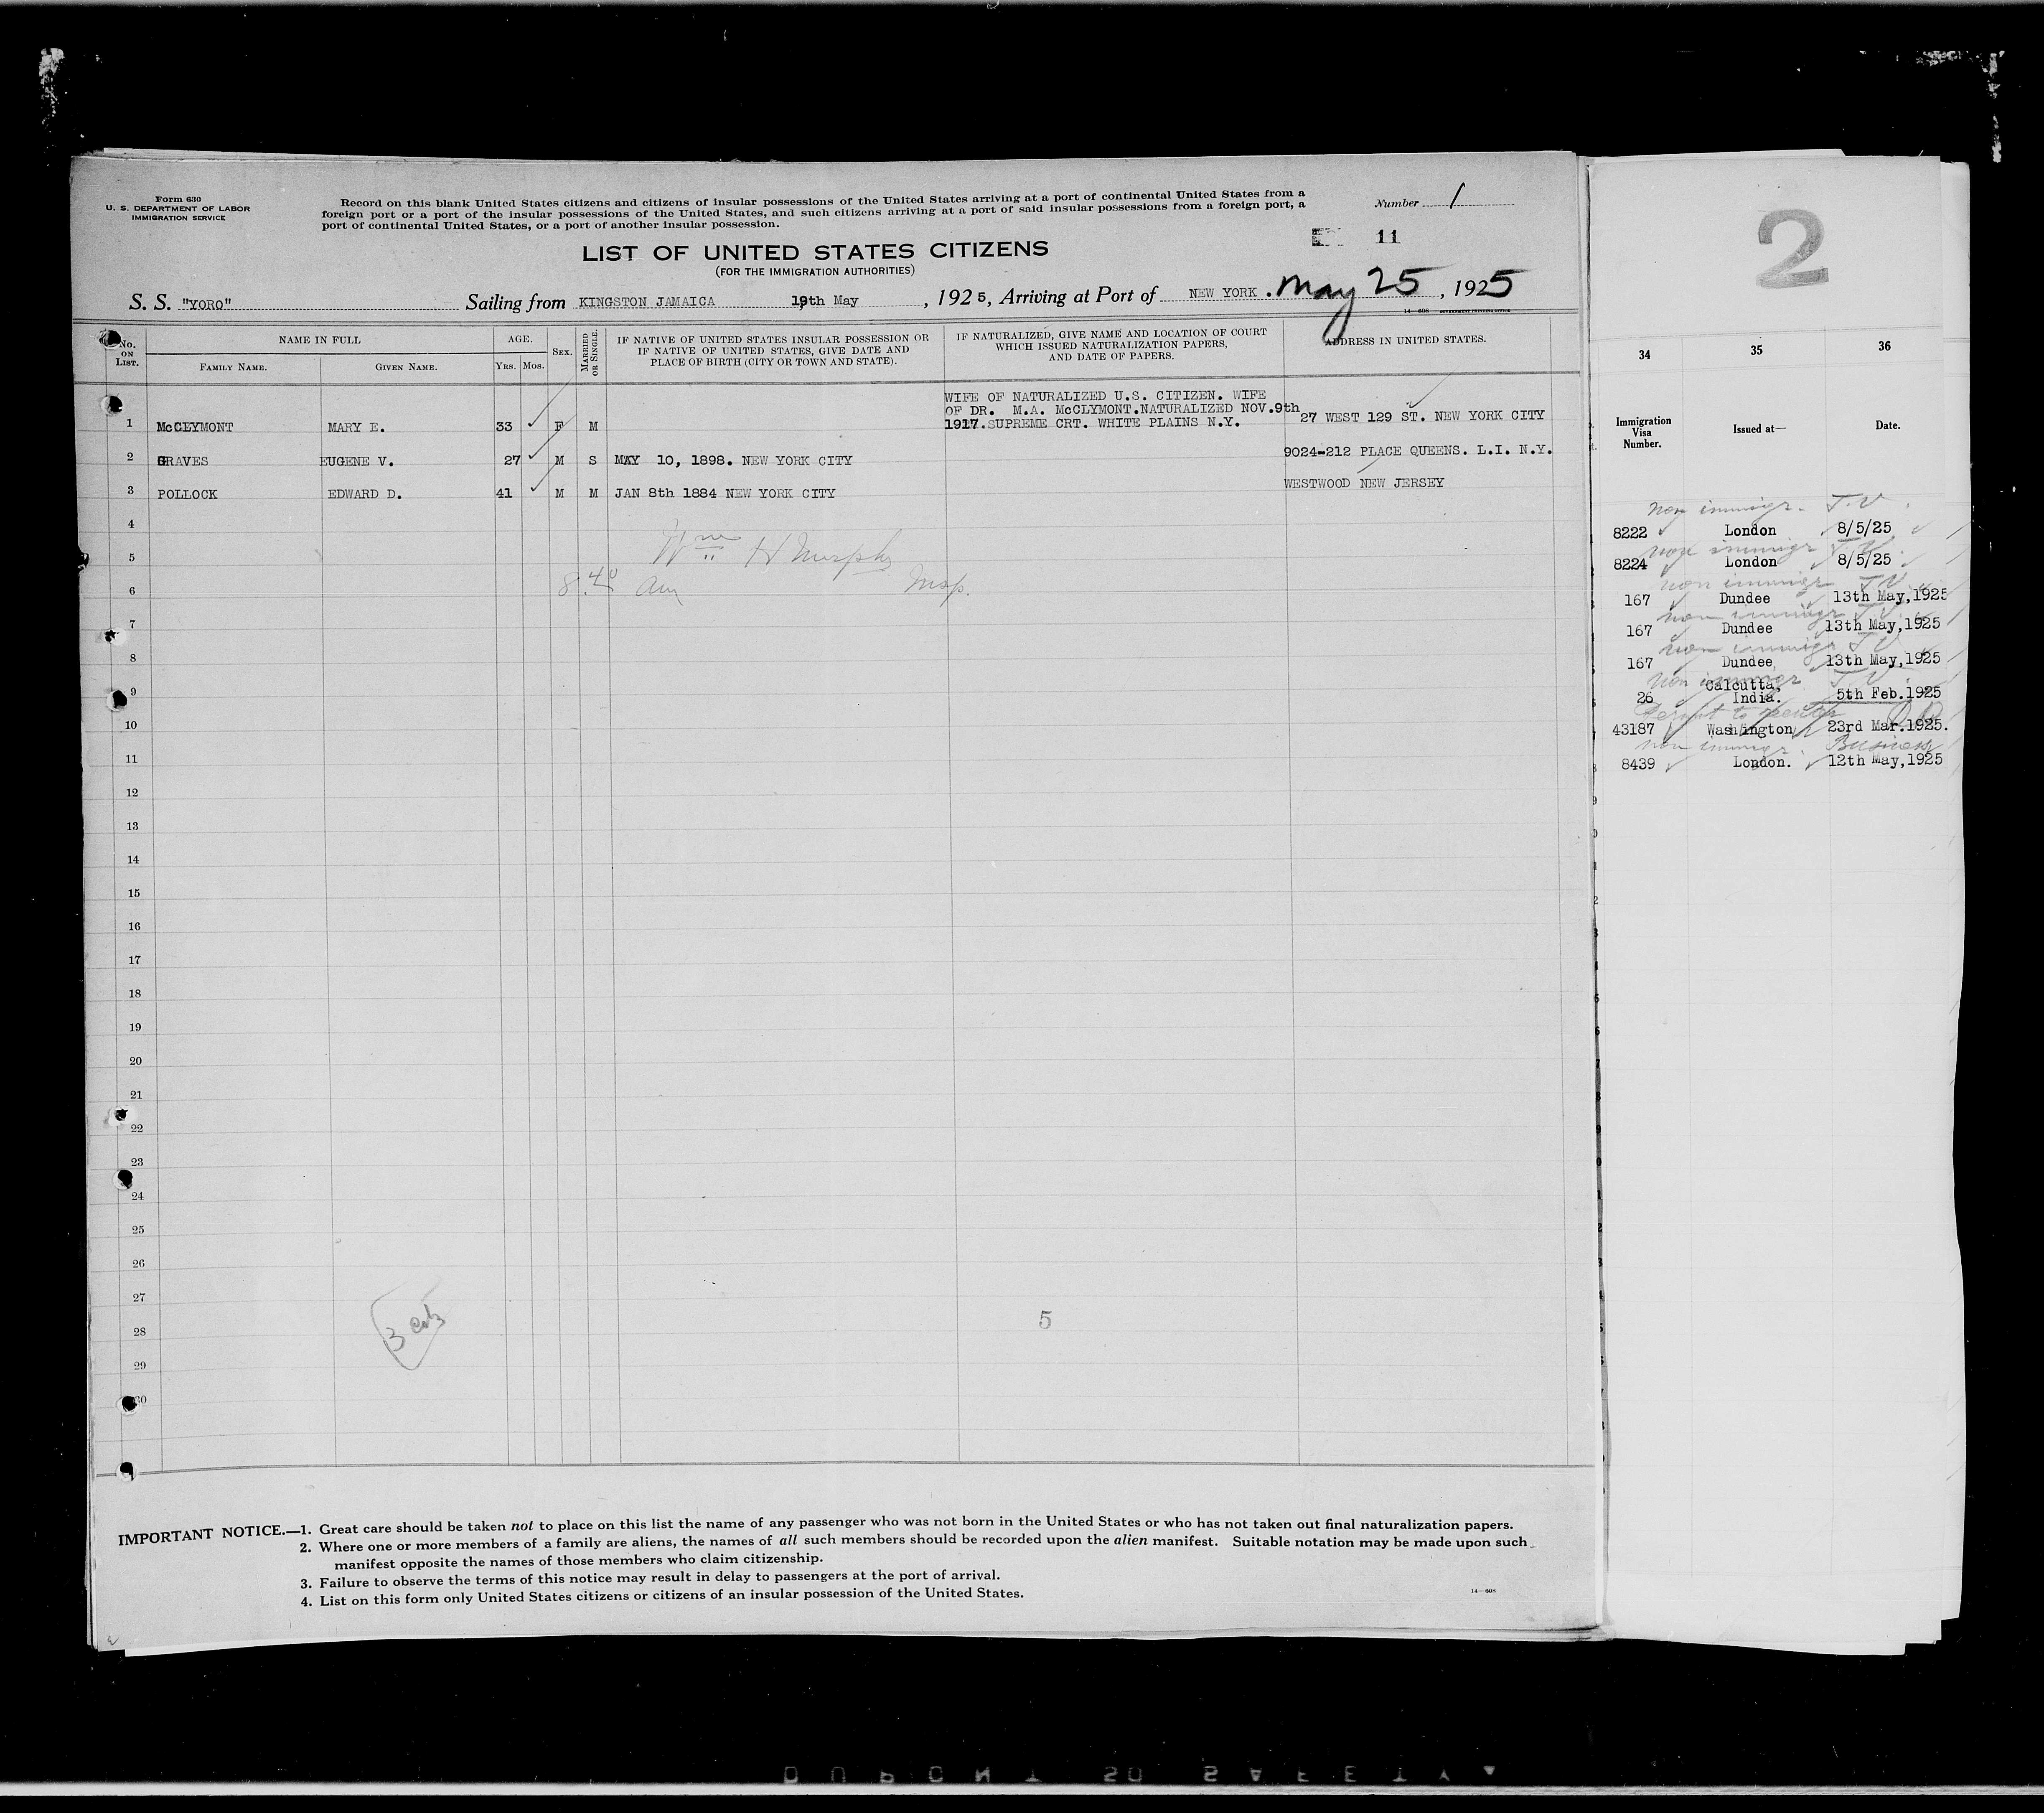 Form 630
U. S. DEPARTMENT OF LABOR
IMMIGRATION SERVICE
Record on this blank United States citizens and citizens of insular possessions of the United States arriving at a port of continental United States from a
foreign port or a port of the insular possessions of the United States, and such citizens arriving at a port of said insular possessions from a foreign port, a
port of continental United States, or a port of another insular possession.
Number 1
11
LIST OF UNITED STATES CITIZENS
(FOR THE IMMIGRATION AUTHORITIES)
S. S. "YORO" Sailing from KINGSTON JAMAICA 19th May, 1925, Arriving at Port of NEW YORK. May 25, 1925
14—608
No. ON LIST. NAME IN FULL AGE. SEX. MARRIED OR SINGLE. IF NATIVE OF UNITED STATES INSULAR POSSESSION OR IF NATIVE OF UNITED STATES, GIVE DATE AND PLACE OF BIRTH (CITY OR TOWN AND STATE). IF NATURALIZED, GIVE NAME AND LOCATION OF COURT WHICH ISSUED NATURALIZATION PAPERS, AND DATE OF PAPERS. ADDRESS IN UNITED STATES.
FAMILY NAME. GIVEN NAME. YRS. MOS.
WIFE OF NATURALIZED U.S. CITIZEN. WIFE
OF DR. M.A. McCLYMONT.NATURALIZED NOV.9th
1 McCLYMONT MARY E. 33 F M 1917.SUPREME CRT. WHITE PLAINS N.Y. 27 WEST 129 ST. NEW YORK CITY
2 GRAVES EUGENE V. 27 M S MAY 10, 1898. NEW YORK CITY 9024-212 PLACE QUEENS. L.I. N.Y.
3 POLLOCK EDWARD D. 41 M M JAN 8th 1884 NEW YORK CITY WESTWOOD NEW JERSEY
4
5 Wm H Murphy
6 8.40 am Insp.
7
8
9
10
11
12
13
14
15
16
17
18
19
20
21
22
23
24
25
26
27
28 5
29
30
IMPORTANT NOTICE.—1. Great care should be taken not to place on this list the name of any passenger who was not born in the United States or who has not taken out final naturalization papers.
2. Where one or more members of a family are aliens, the names of all such members should be recorded upon the alien manifest. Suitable notation may be made upon such
manifest opposite the names of those members who claim citizenship.
3. Failure to observe the terms of this notice may result in delay to passengers at the port of arrival.
4. List on this form only United States citizens or citizens of an insular possession of the United States.
14—608
2
34 35 36
Immigration Visa Number. Issued at— Date.
non immigr. T.V.
8222 London 8/5/25
non immigr T.V.
8224 London 8/5/25
non immigr T.V.
167 Dundee 13th May,1925
non immigr T.V.
167 Dundee 13th May,1925
non immigr T.V.
167 Dundee 13th May,1925
non immigr T.V.
26 Calcutta, India. 5th Feb.1925
Permit to reenter
43187 Washington 23rd Mar.1925.
non immigr. Business
8439 London. 12th May,1925
DUPONT SAFETY